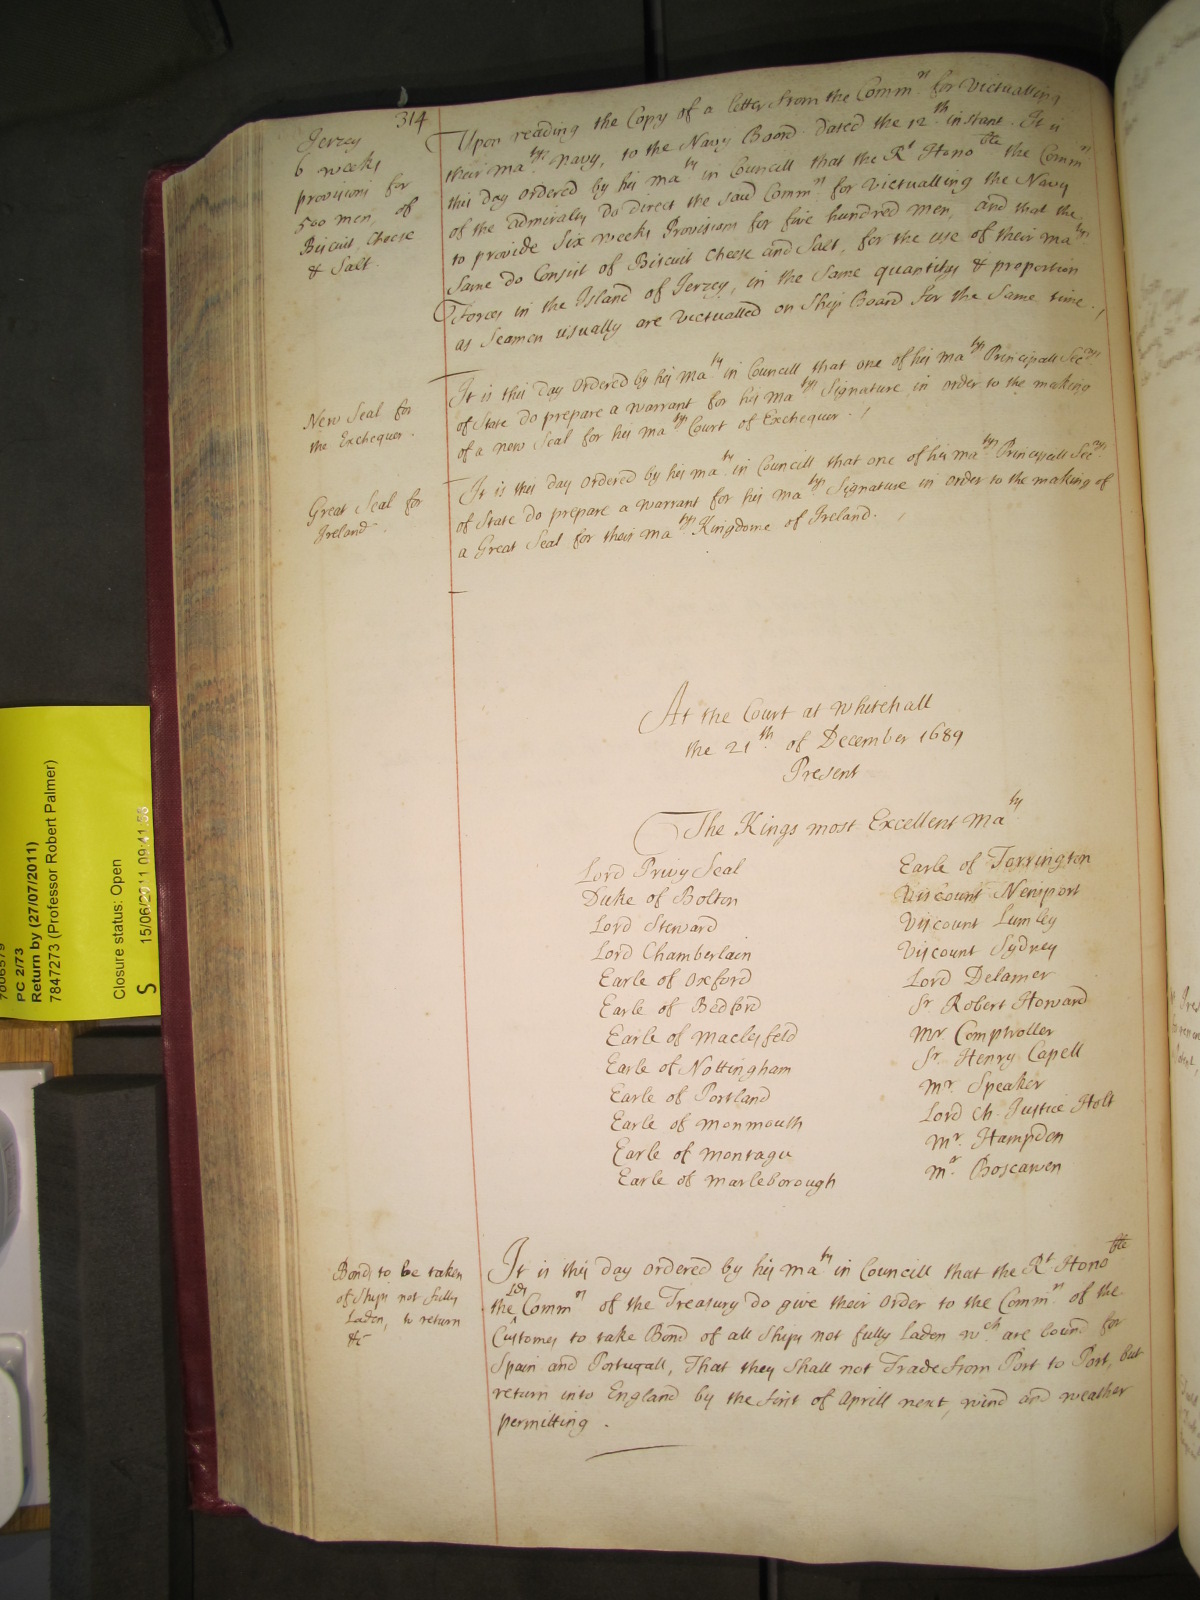 314
Jerzey
6 weeks
provisions for
500 men, of
Biscuit, Cheese
& Salt.
Upon reading the Copy of a letter from the Commrs for Victualling
their Matys Navy, to the Navy Board dated the 12th instant. It is
this day ordered by his Maty in Councill that the Rt Honoble the Commrs
of the Admiralty Do Direct the said Commrs for Victualling the Navy
to provide Six weeks Provisions for five hundred men, and that the
same do Consist of Biscuit Cheese and Salt, for the use of their Matys
Forces in the Island of Jerzey, in the same quantitys & proportion
as Seamen usually are Victualled on Ship Board for the same time.
New Seal for
the Exchequer.
It is this day ordered by his Maty in Councill that one of his Matys Principall Secrys
of State Do prepare a warrant for his Matys Signature in order to the making
of a new Seal for his Matys Court of Exchequer.
Great Seal for
Ireland.
It is this day ordered by his Maty in Councill that one of his Matys Principall Secrys
of State Do prepare a warrant for his Matys Signature in order to the making of
a Great Seal for their Matys Kingdome of Ireland.
At the Court at Whitehall
the 21th of December 1689
Present
The Kings most Excellent Maty
Lord Privy Seal
Duke of Bolton
Lord Steward
Lord Chamberlain
Earle of Oxford
Earle of Bedford
Earle of Maclesfeld
Earle of Nottingham
Earle of Portland
Earle of Monmouth
Earle of Montagu
Earle of Marleborough
Earle of Torrington
Viscount Newport
Viscount Lumley
Viscount Sydney
Lord Delamer
Sr Robert Howard
Mr Comptroller
Sr Henry Capell
Mr Speaker
Lord Ch. Justice Holt
Mr Hampden
Mr Boscawen
Bonds to be taken
of Ships not fully
Laden, to return
&c
It is this day ordered by his Maty in Councill that the Rt Honoble
the Lds Commrs of the Treasury do give their Order to the Commrs of the
Customes to take Bond of all Ships not fully Laden wch are bound for
Spain and Portugall, That they shall not Trade from Port to Port, but
return into England by the first of Aprill next, wind and weather
permitting.
PC 2/73
Return by (27/07/2011)
7847273 (Professor Robert Palmer)
Closure status: Open
S 15/06/2011 09:41:56